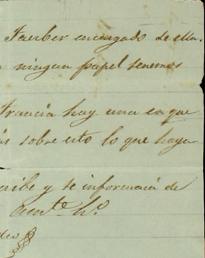 Faerber encargado de ella.
ningun papel tenemos
Francia hay una en que
sobre esto lo que haya
cribe y se informará de
des